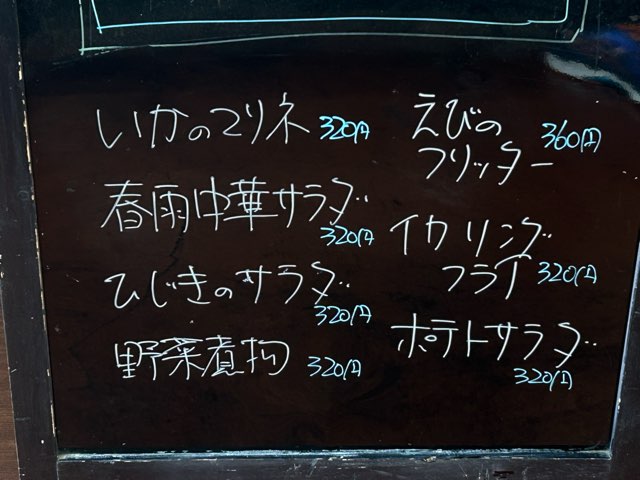 いかのマリネ 320円
春雨中華サラダ
320円
ひじきのサラダ
320円
野菜煮物 320円
えびの
フリッター 360円
イカリング
フライ 320円
ポテトサラダ
320円